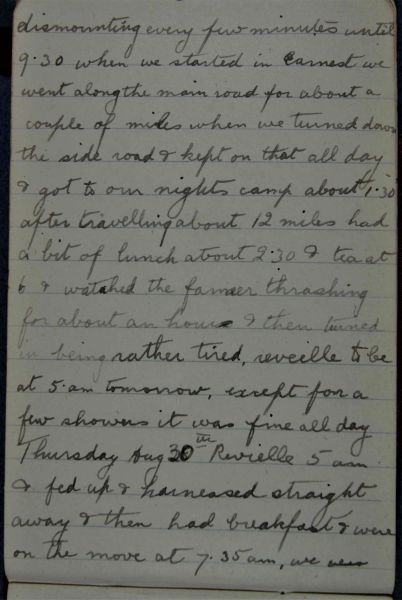 dismounting every few minutes until
9.30 when we started in earnest we
went along the main road for about a
couple of miles when we turned down
the side road & kept on that all day
& got to our nights camp about 1.30
after travelling about 12 miles had
a bit of lunch about 2.30 & tea at
6 & watched the farmer thrashing
for about an hour & then turned
in being rather tired, reveille to be
at 5 am tomorrow, except for a
few showers it was fine all day
Thursday Aug 30th Revielle 5 am
& fed up & harnessed straight
away & then had breakfast & were
on the move at 7.35 am, we were